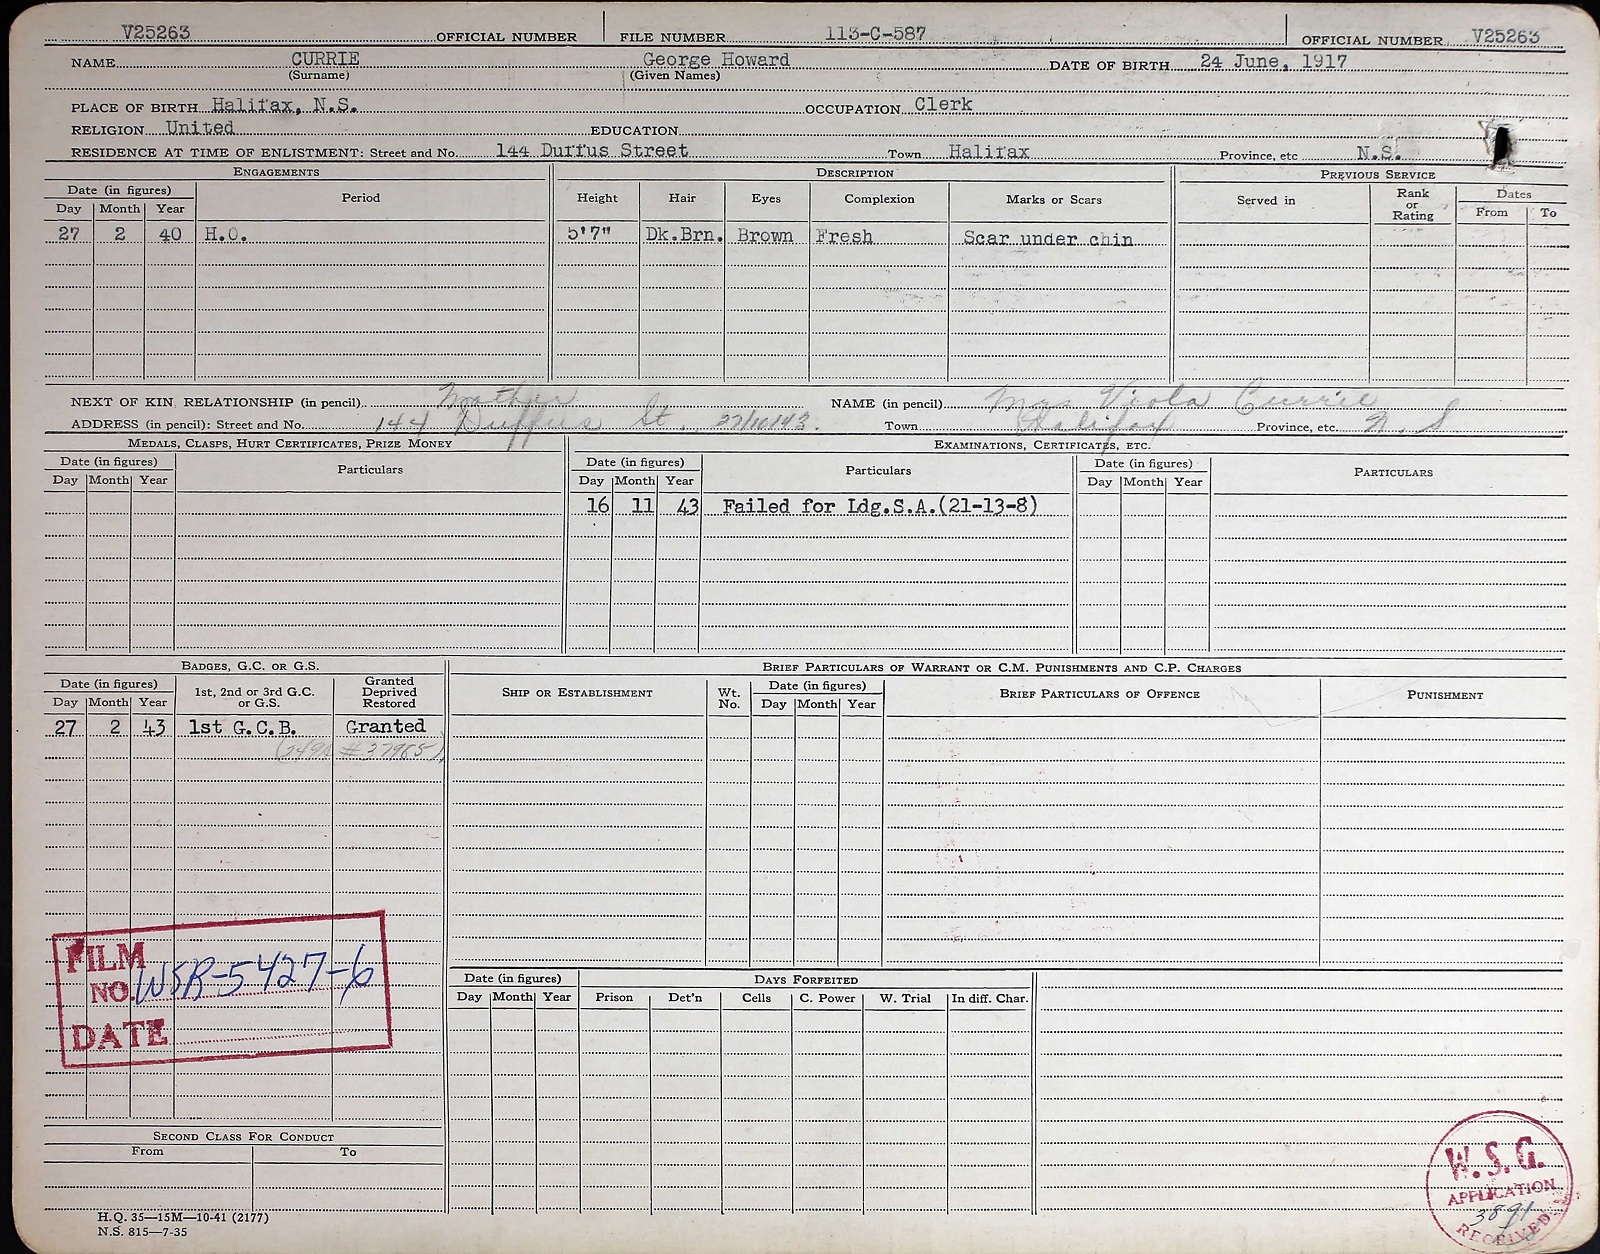 V25263 OFFICIAL NUMBER FILE NUMBER 113-C-587 OFFICIAL NUMBER V25263
NAME CURRIE George Howard DATE OF BIRTH 24 June, 1917
(Surname) (Given Names)
PLACE OF BIRTH Halifax, N.S. OCCUPATION Clerk
RELIGION United EDUCATION
RESIDENCE AT TIME OF ENLISTMENT: Street and No. 144 Duffus Street Town Halifax Province, etc N.S.
ENGAGEMENTS DESCRIPTION PREVIOUS SERVICE
Date (in figures) Period Height Hair Eyes Complexion Marks or Scars Served in Rank or Rating Dates
Day Month Year From To
27 2 40 H.O. 5'7" Dk.Brn. Brown Fresh Scar under chin
NEXT OF KIN RELATIONSHIP (in pencil) Mother NAME (in pencil) Mrs Viola Currie
ADDRESS (in pencil): Street and No. 144 Duffus St. 27/10/43. Town Halifax Province, etc. N.S
MEDALS, CLASPS, HURT CERTIFICATES, PRIZE MONEY EXAMINATIONS, CERTIFICATES, ETC.
Date (in figures) Particulars Date (in figures) Particulars Date (in figures) PARTICULARS
Day Month Year Day Month Year Day Month Year
16 11 43 Failed for Ldg.S.A.(21-13-8)
BADGES, G.C. OR G.S. BRIEF PARTICULARS OF WARRANT OR C.M. PUNISHMENTS AND C.P. CHARGES
Date (in figures) 1st, 2nd or 3rd G.C. or G.S. Granted Deprived Restored SHIP OR ESTABLISHMENT Wt. No. Date (in figures) BRIEF PARTICULARS OF OFFENCE PUNISHMENT
Day Month Year Day Month Year
27 2 43 1st G.C.B. Granted
FILM
NO. WSR-5427-6
DATE
Date (in figures) DAYS FORFEITED
Day Month Year Prison Det'n Cells C. Power W. Trial In diff. Char.
SECOND CLASS FOR CONDUCT
From To
W.S.G.
APPLICATION
3891
RECEIVED
H.Q. 35—15M—10-41 (2177)
N.S. 815—7-35